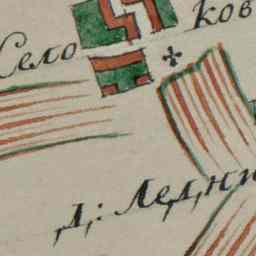 Село
ков
д: Ледни